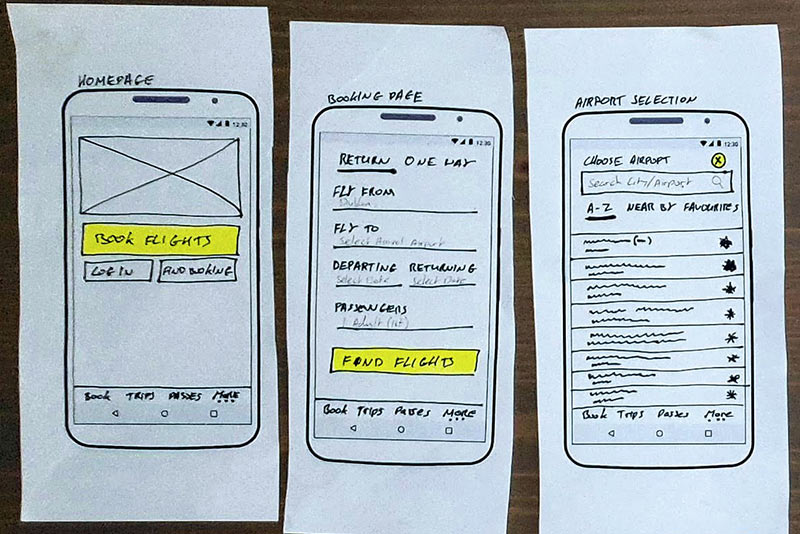 HOMEPAGE
12:30
BOOK FLIGHTS
LOG IN
FIND BOOKING
BOOK TRIPS PASSES MORE
BOOKING PAGE
12:30
RETURN ONE WAY
FLY FROM
Dublin
FLY TO
Select Arrival Airport
DEPARTING RETURNING
Select Date Select Date
PASSENGERS
1 Adult (16+)
FIND FLIGHTS
BOOK TRIPS PASSES MORE
AIRPORT SELECTION
12:30
CHOOSE AIRPORT X
Search City/Airport
A-Z NEAR BY FAVOURITES
BOOK TRIPS PASSES MORE